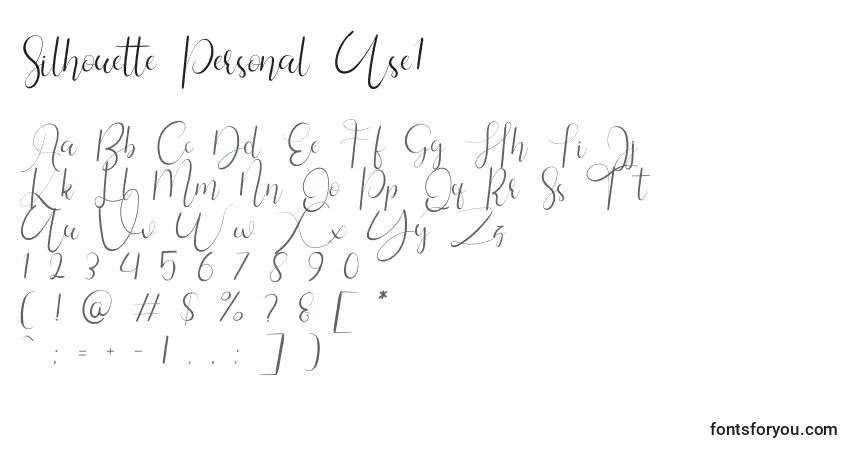 Silhouette Personal Use1
Aa Bb Cc Dd Ee Ff Gg Hh Ii Jj
Kk Ll Mm Nn Oo Pp Qq Rr Ss Tt
Uu Vv Ww Xx Yy Zz
1 2 3 4 5 6 7 8 9 0
( ! @ # $ % ? & [ *
^ ; = + - | . , : ] )
fontsforyou.com